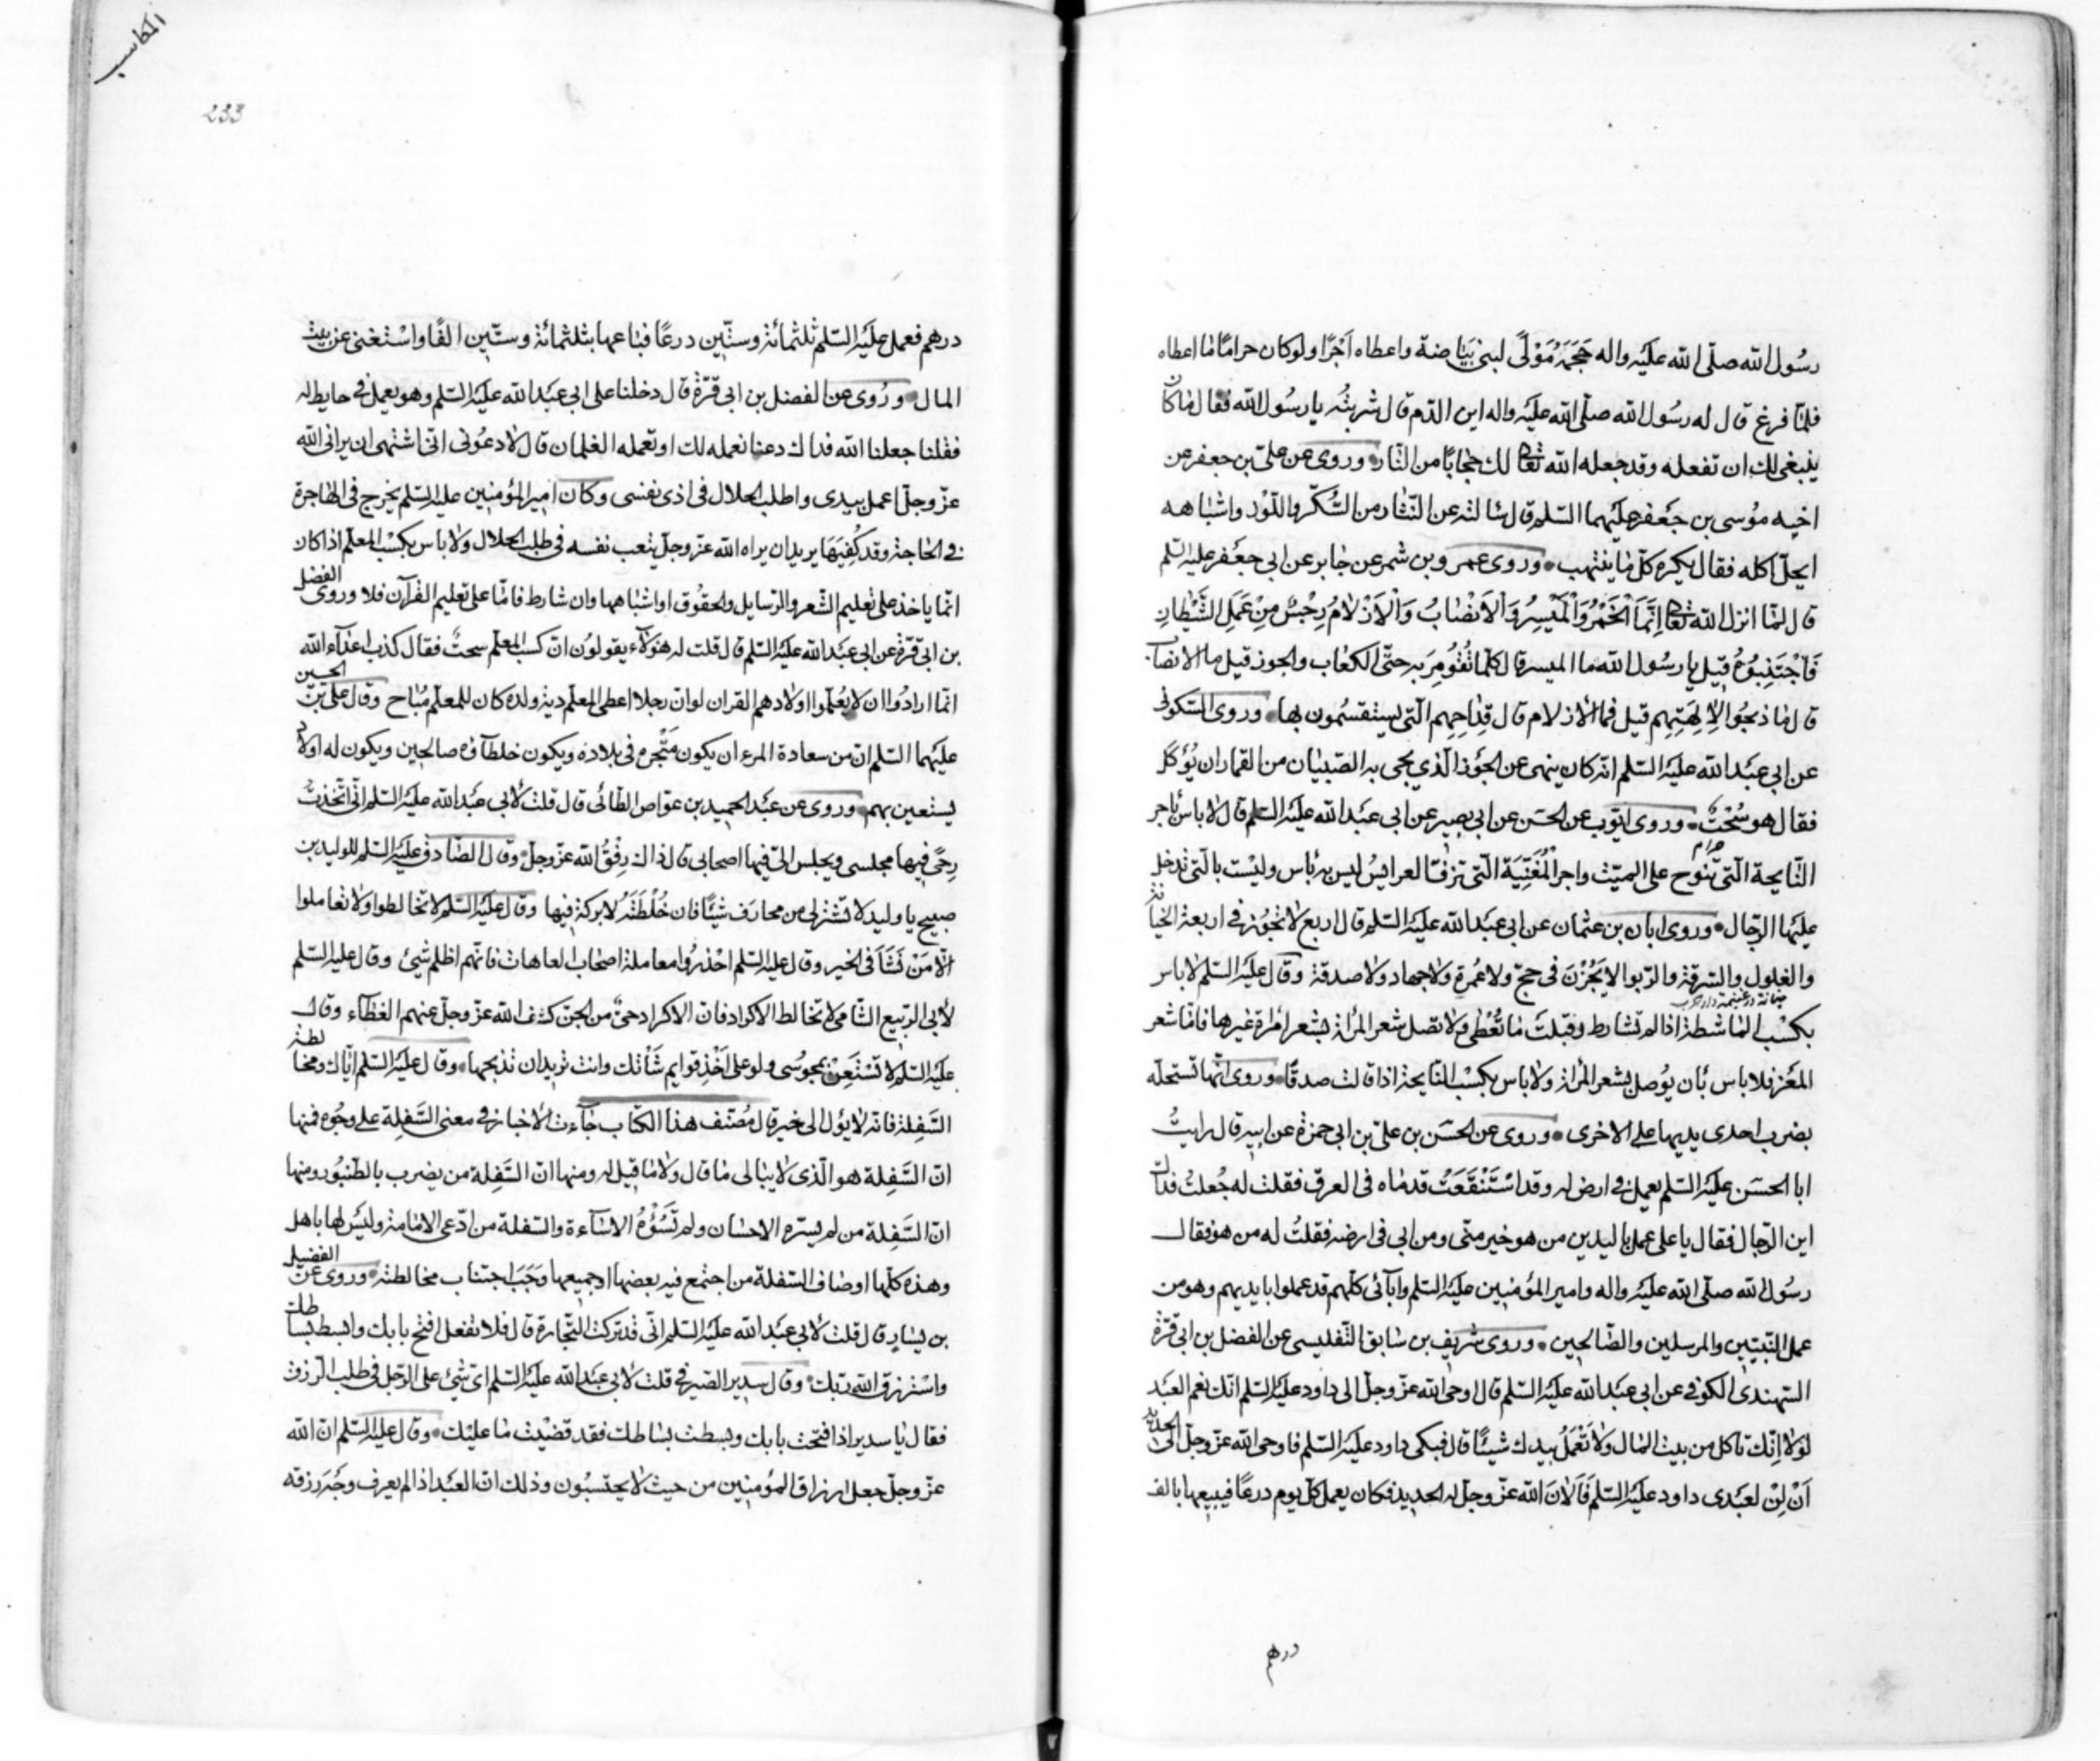 رسُول الله صلّى الله عليْه واله حَجَمَهُ مَوْلًى لبنى بَيٰاضة واعطاه اَجْرًا ولوكان حرامًا مٰا اعطاه
فلمّا فرغ قال له رسُول الله صلّى الله عليْه واله اين الدّم قال شربتُه يا رسُول الله فقال مٰا كان
ينبغى لك ان تفعله وقد جعله الله تعالى لك حجٰابًا من النّار وروى عن علىّ بن جعفر عن
اخيه مُوسى بن جَعفر عليْهما السّلم قال سٰالته عن النّثٰار من السُّكّر واللّوْز واشبٰاهه
ايحلّ اكله فقال يكره كلّ مٰا ينتهب وروى عمرو بن شمر عن جٰابر عن ابى جعفر عليْه السّلم
قال لمّا انزل الله تعالى اِنَّمَا الْخَمْرُ وَالْمَيْسِرُ وَالْاَنْصٰابُ وَالْاَزْلٰامُ رِجْسٌ مِنْ عَمَلِ الشَّيْطٰانِ
فَاجْتَنِبُوهُ قيل يٰا رسُول الله ما الميسر قال كلّما تُقُومِرَ به حتّى الكعٰاب والجوز قيل ما الانصاب
قال مٰا ذبحُوا لِاٰلِهَتِهِم قيل فما الازلام قال قِدٰاحِهِم الّتى يستقسمُون بها وروى السّكونى
عن ابى عبَد الله عليْه السّلم انّه كان ينهى عن الجَوْز الّذي يجى به الصّبْيٰان من القمار ان يُؤكل
فقال هو سُحْتٌ وروى ايّوب عن الحسَن عن ابى بصير عن ابى عبَد الله عليْه السّلم قال لاباس باجر
حرام
النّايحة الّتى تنوح على الميّت واجر المُغَنّيَة الّتى تزفّ العرايس ليس به بأس وليْست بالّتى تدخل
عليهٰا الرّجال وروى ابان بن عثمان عن ابى عبَد الله عليْه السّلم قال اربع لاتجُوز فى اربعة الخيانة
والغلول والسّرقة والرّبوا لايَجُزْنَ فى حجّ ولا عُمرة ولاجهاد ولا صدقة وقال عليْه السّلم لاباس
بكسْب المٰاشطة اذا لم تشارط وقبلتَ مٰا تُعْطى ولاتصل شعر المرأة بشعر امْرأة غيرها فامّا شعر
المَعْز فلاباس بأن يُوصل بشعر المرأة ولاباس بكسْب النّايحة اذا قالت صدقًا وروى انّها تستحلّه
بضرب احدى يديها على الاخرى وروى عن الحسَن بن علىّ بن ابى حمزة عن ابيه قال رايتُ
ابا الحسَن عليْه السّلم يعمل فى ارض له وقد اسْتَنْقَعَتْ قدمٰاه فى العرق فقلت له جُعلتُ فداك
اين الرّجال فقال يا علىّ عمل باليدين من هو خير منّى ومن ابى فى ارضه فقلتُ له من هو فقال
رسُول الله صلّى الله عليْه واله وامير المؤمنين عليْه السّلم وابآئى كلّهم قد عملوا بايديهم وهو من
عمل النّبيّين والمرسلين والصّالحين وروى شريف بن سٰابق التّفليسى عن الفضل بن ابى قرّة
السّهندى الكوفى عن ابى عبَد الله عليْه السّلم قال اوحى الله عزّ وجلّ الى داود عليْه السّلم انّك نعم العبَد
لولا انّك تاكل من بيت المٰال ولاتَعْمَلُ بيدك شيئًا قال فبكى داود عليْه السّلم فاوحى الله عزّ وجلّ الى الحديد
اَنْ لِنْ لعبَدى داود عليْه السّلم فَاَلٰانَ الله عزّ وجلّ له الحديد فكان يعمل كلّ يوم درعًا فيبيعها بالف
درهم
المكاسب
233
درهم فعمل عليْه السّلم ثلثمائة وستّين درعًا فبٰاعها بثلثمائة وستّين الفًا واسْتغنى عن بيت
المال وروى عن الفضل بن ابى قرّة قال دخلنا على ابى عبَد الله عليْه السّلم وهو يعمل فى حايط له
فقلنا جعلنا الله فداك دعنا نعمله لك او تعمله الغلمان قال لادعُونى انّى اشتهى ان يرانى الله
عزّ وجلّ اعمل بيدى واطلب الحلال فى اذى نفسى وكان امير المؤمنين عليه السّلم يخرج فى الهاجرة
فى الحٰاجة وقد كُفِيَهَا يريد ان يراه الله عزّ وجلّ يتعب نفسه فى طلب الحلال ولاباس بكسْب المعلّم اذا كان
انّما ياخذ على تعليم الشّعر والرّسايل والحقوُق واشبٰاهها وان شارط فامّا على تعليم القرآن فلا وروى الفضل
بن ابى قرّة عن ابى عبَد الله عليْه السّلم قال قلت له هٰؤلآء يقولُون انّ كسْب المعلّم سحتٌ فقال كذب اعدٰآء الله
انّما ارادُوا ان لايُعلّموا اولادهم القران لو انّ رجلا اعطى المعلّم دية ولده كان للمعلّم مُبٰاح وقال علىّ بن الحسين
عليْهما السّلم انّ من سعادة المرء ان يكون مَتْجره فى بلاده ويكون خلطآؤه صالحين ويكون له اولاد
يستعين بهم وروى عن عبَد الحميد بن عوّاص الطّائى قال قلت لأبى عبَد الله عليْه السّلم انّى اتّخذتُ
رحًى فيها مجلسى ويجلس الىّ فيها اصحابى قال ذاك رِفْقُ الله عزّ وجلّ وقال الصّادق عليْه السّلم للوليد بن
صبيح يا وليد لاتشتر لى من محارف شيئًا فان خُلْطَتَهُ لابركة فيها وقال عليْه السّلم لاتخالطوا ولاتعاملوا
الّا مَنْ نَشَأَ فى الخير وقال عليْه السّلم احْذرُوا معاملة اصحٰاب العاهات فانّهم اظلم شئ وقال عليْه السّلم
لأبى الرّبيع الشّامى لاتخالط الاكراد فانّ الاكراد حىّ من الجنّ كشف الله عزّ وجلّ عنهم الغطآء وقال
عليْه السّلم لاتَسْتَعِنْ بمجوُسى ولو على اَخْذِ قوايم شَٰاتك وانت تريد ان تذبحها وقال عليْه السّلم ايّاك ومخالطة
السَّفِلة فانّه لايؤل الى خير قال مُصَنّف هذا الكتاب جٰآءت الأخبار فى معنى السَّفِلة على وجُوه فمنها
انّ السَّفِلة هو الّذى لايبٰالى مٰا قال ولامٰا قيل له ومنها انّ السَّفِلة من يضرب بالطّنبُور ومنها
انّ السَّفِلة من لم يسرّه الاحسٰان ولم تَسُؤْهُ الاسٰآءة والسّفلة من ادّعى الامٰامة وليْس لها باهل
وهذه كلّها اوصٰاف السّفلة من اجتمع فيه بعضها او جميعها وَجَبَ اجتناب مخالطته وروى عن الفضيل
بن يسٰارٍ قال قلت لأبى عبَد الله عليْه السّلم انّى قد تركت التّجارة قال فلاتفعل افتح بابك وابسط بسٰاطك
واسْترزق الله ربّك وقال سدير الصّيرفى قلت لأبى عبَد الله عليْه السّلم اى شئ على الرّجل فى طلب الرّزق
فقال يٰا سدير اذا فتحت بابك وبسطت بسٰاطك فقد قضيْت مٰا عليْك وقال عليْه السّلم انّ الله
عزّ وجلّ جعل ارزاق المؤمنين من حيث لايحتسبُون وذلك انّ العبَد اذا لم يعرف وجْه رزقه